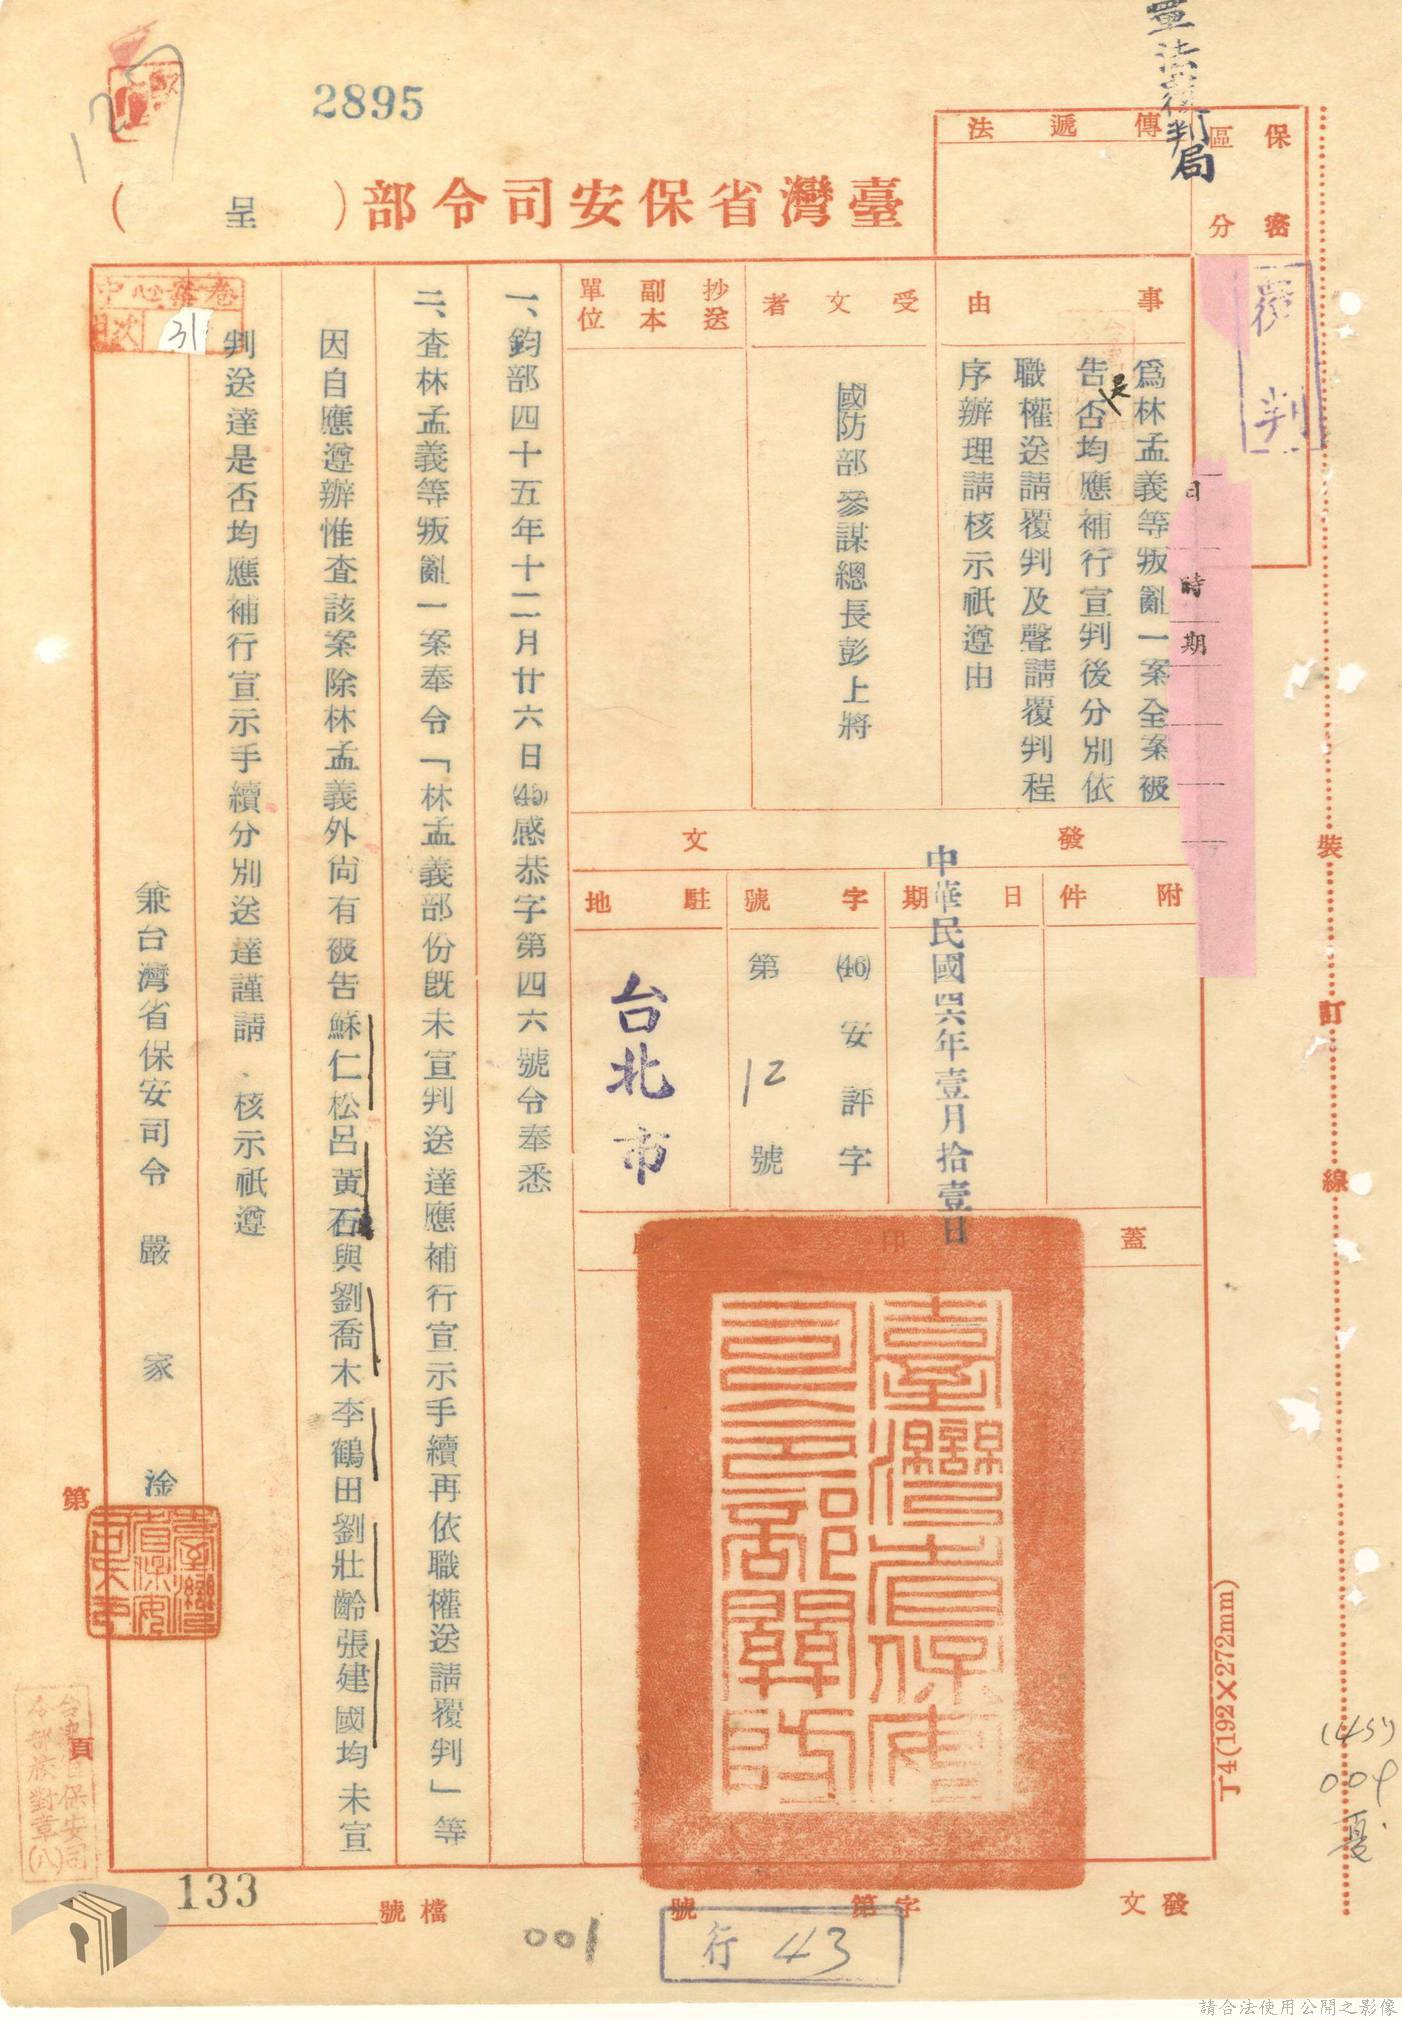 軍法覆判局
2895
臺灣省保安司令部（呈）
保密
區分
傳遞法
覆判
日
時
期
事由
為林孟義等叛亂一案全案被
告是否均應補行宣判後分別依
職權送請覆判及聲請覆判程
序辦理請核示祇遵由
受文者
國防部參謀總長彭上將
抄送
副本
單位
發文
附件
日期
中華民國四六年壹月拾壹日
字號
(46)安評字
第12號
駐地
台北市
蓋印
臺灣省保安司令部關防
一、鈞部四十五年十二月廿六日(45)感恭字第四六號令奉悉
二、查林孟義等叛亂一案奉令「林孟義部份既未宣判送達應補行宣示手續再依職權送請覆判」等
因自應遵辦惟查該案除林孟義外尚有被告蘇仁松呂黃石與劉喬木李鶴田劉壯齡張建國均未宣
判送達是否均應補行宣示手續分別送達謹請．核示祇遵
兼台灣省保安司令 嚴家淦
中心案卷
目次
31
第
頁
台灣省保安司
令部校對章(八)
裝訂線
丁4(192×272mm)
發文
字第
號
檔號
133
001
行 43
請合法使用公開之影像